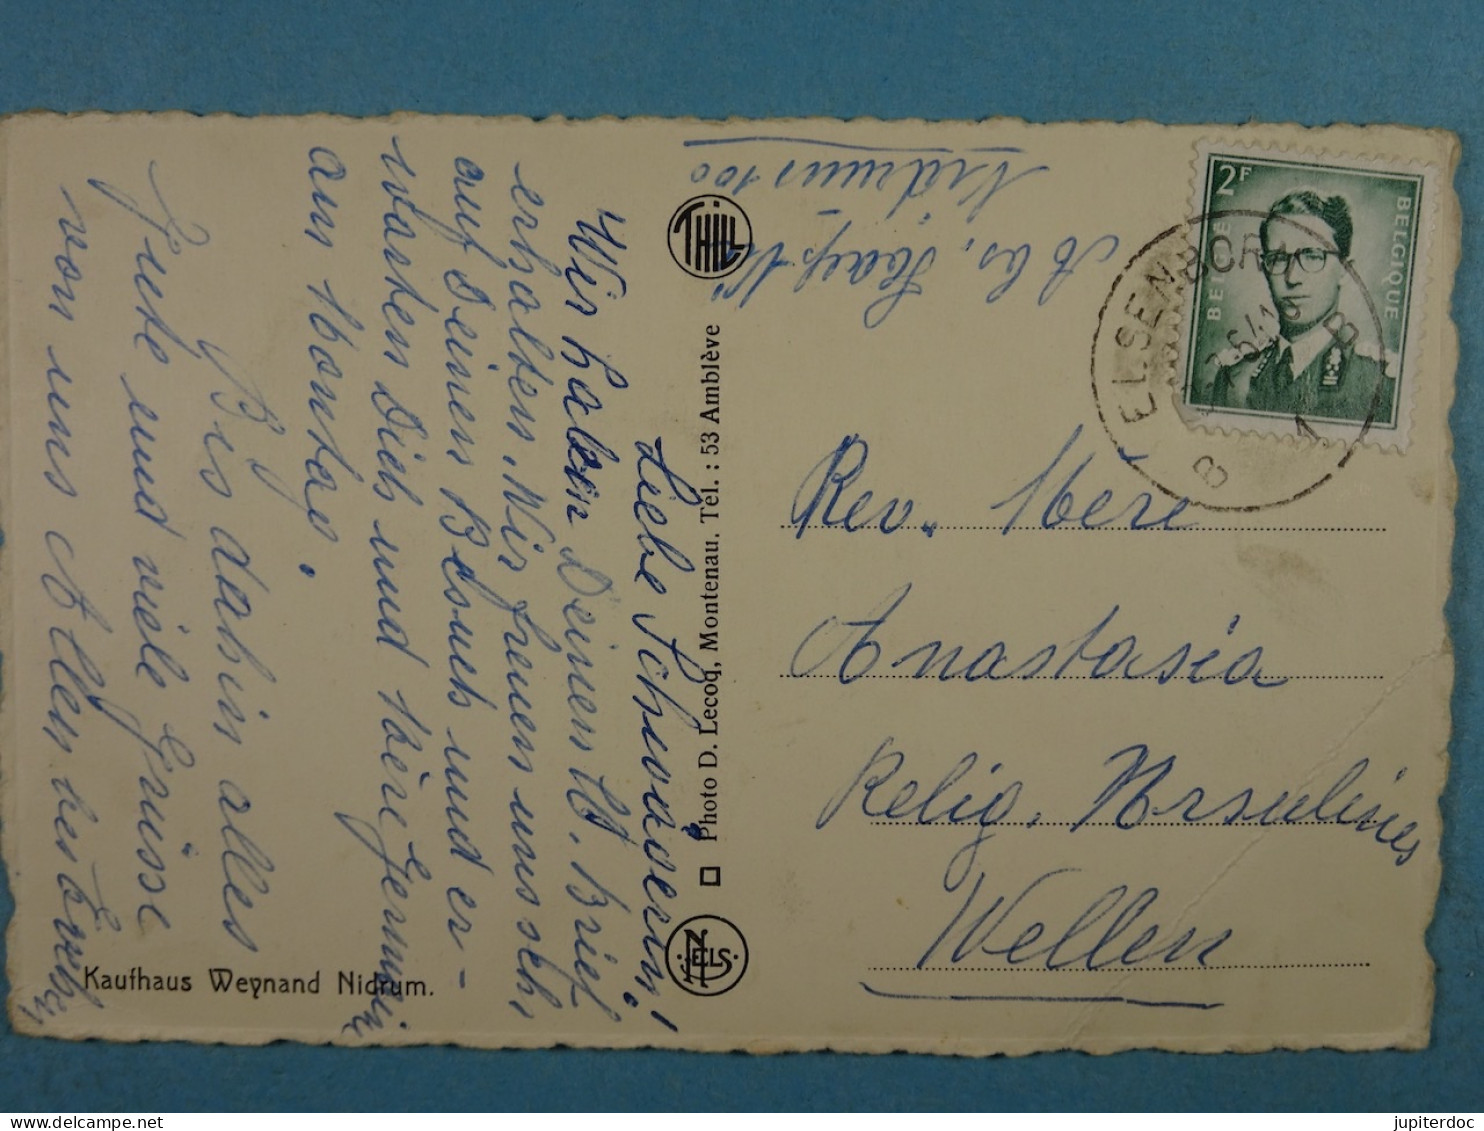 Liebe Schwestern!
Wir haben Deinen lb. Brief
erhalten. Wir freuen uns seh
auf Deinen Besuch und er-
warten Dich und Mère
am Montag.
Bis dahin alles
Gute und viele Grüsse
von uns Allen
Kaufhaus Weynand Nidrum.
THILL
Photo D. Lecoq, Montenau. Tél. : 53 Amblève
NELS
Nidrum 100
2F
BELGIE
BELGIQUE
ELSENBORN
Rev. Mere
Anastasia
Relig. Ursulines
Wellen
jupiterdoc